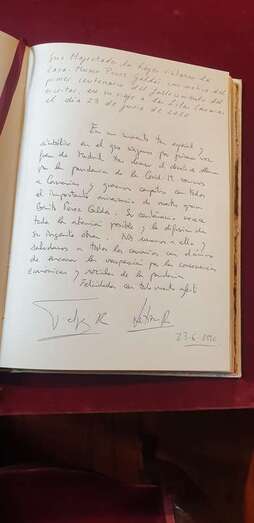 Sus Majestades los Reyes visitaron la
Casa-Museo Pérez Galdós con motivo del
primer centenario del fallecimiento del
escritor, en su viaje a las Islas Canarias
el día 23 de junio de 2020
En un momento tan especial y
simbólico en el que viajamos por primera vez
fuera de Madrid
por la pandemia de la Covid-19, venimos
a Canarias y queremos compartir con todos
el importante aniversario de nuestro gran
Benito Pérez Galdós. Su centenario merece
toda la atención posible y la difusión de
su ingente obra. Nos sumamos a ello y
saludamos a todos los canarios con el ánimo
de la recuperación por las consecuencias
económicas y sociales de la pandemia
Felicidades con todo nuestro afecto
Felipe R
Letizia R
23-6-2020